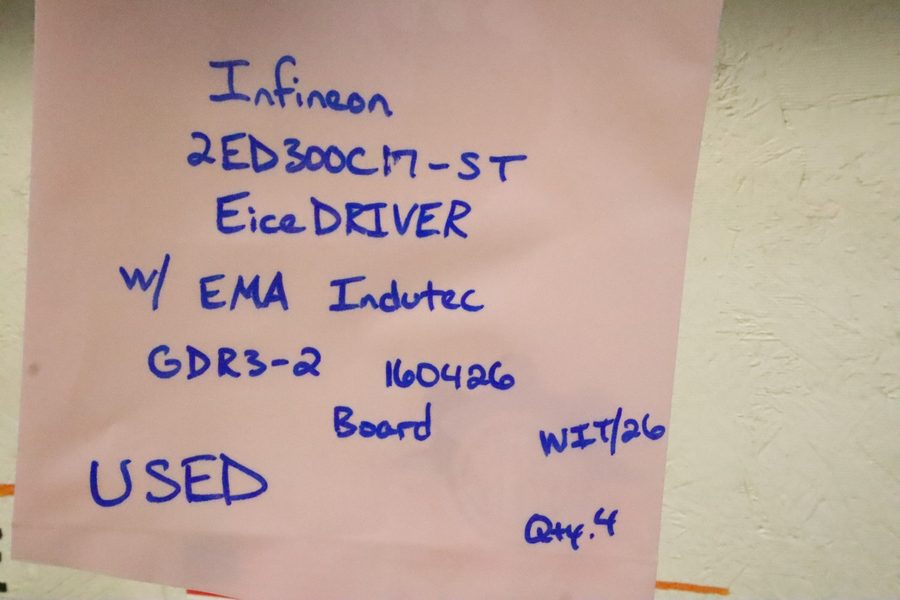 Infineon
2ED300C17-ST
EiceDRIVER
w/ EMA Indutec
GDR3-2 160426
Board
WIT/26
USED
Qty. 4